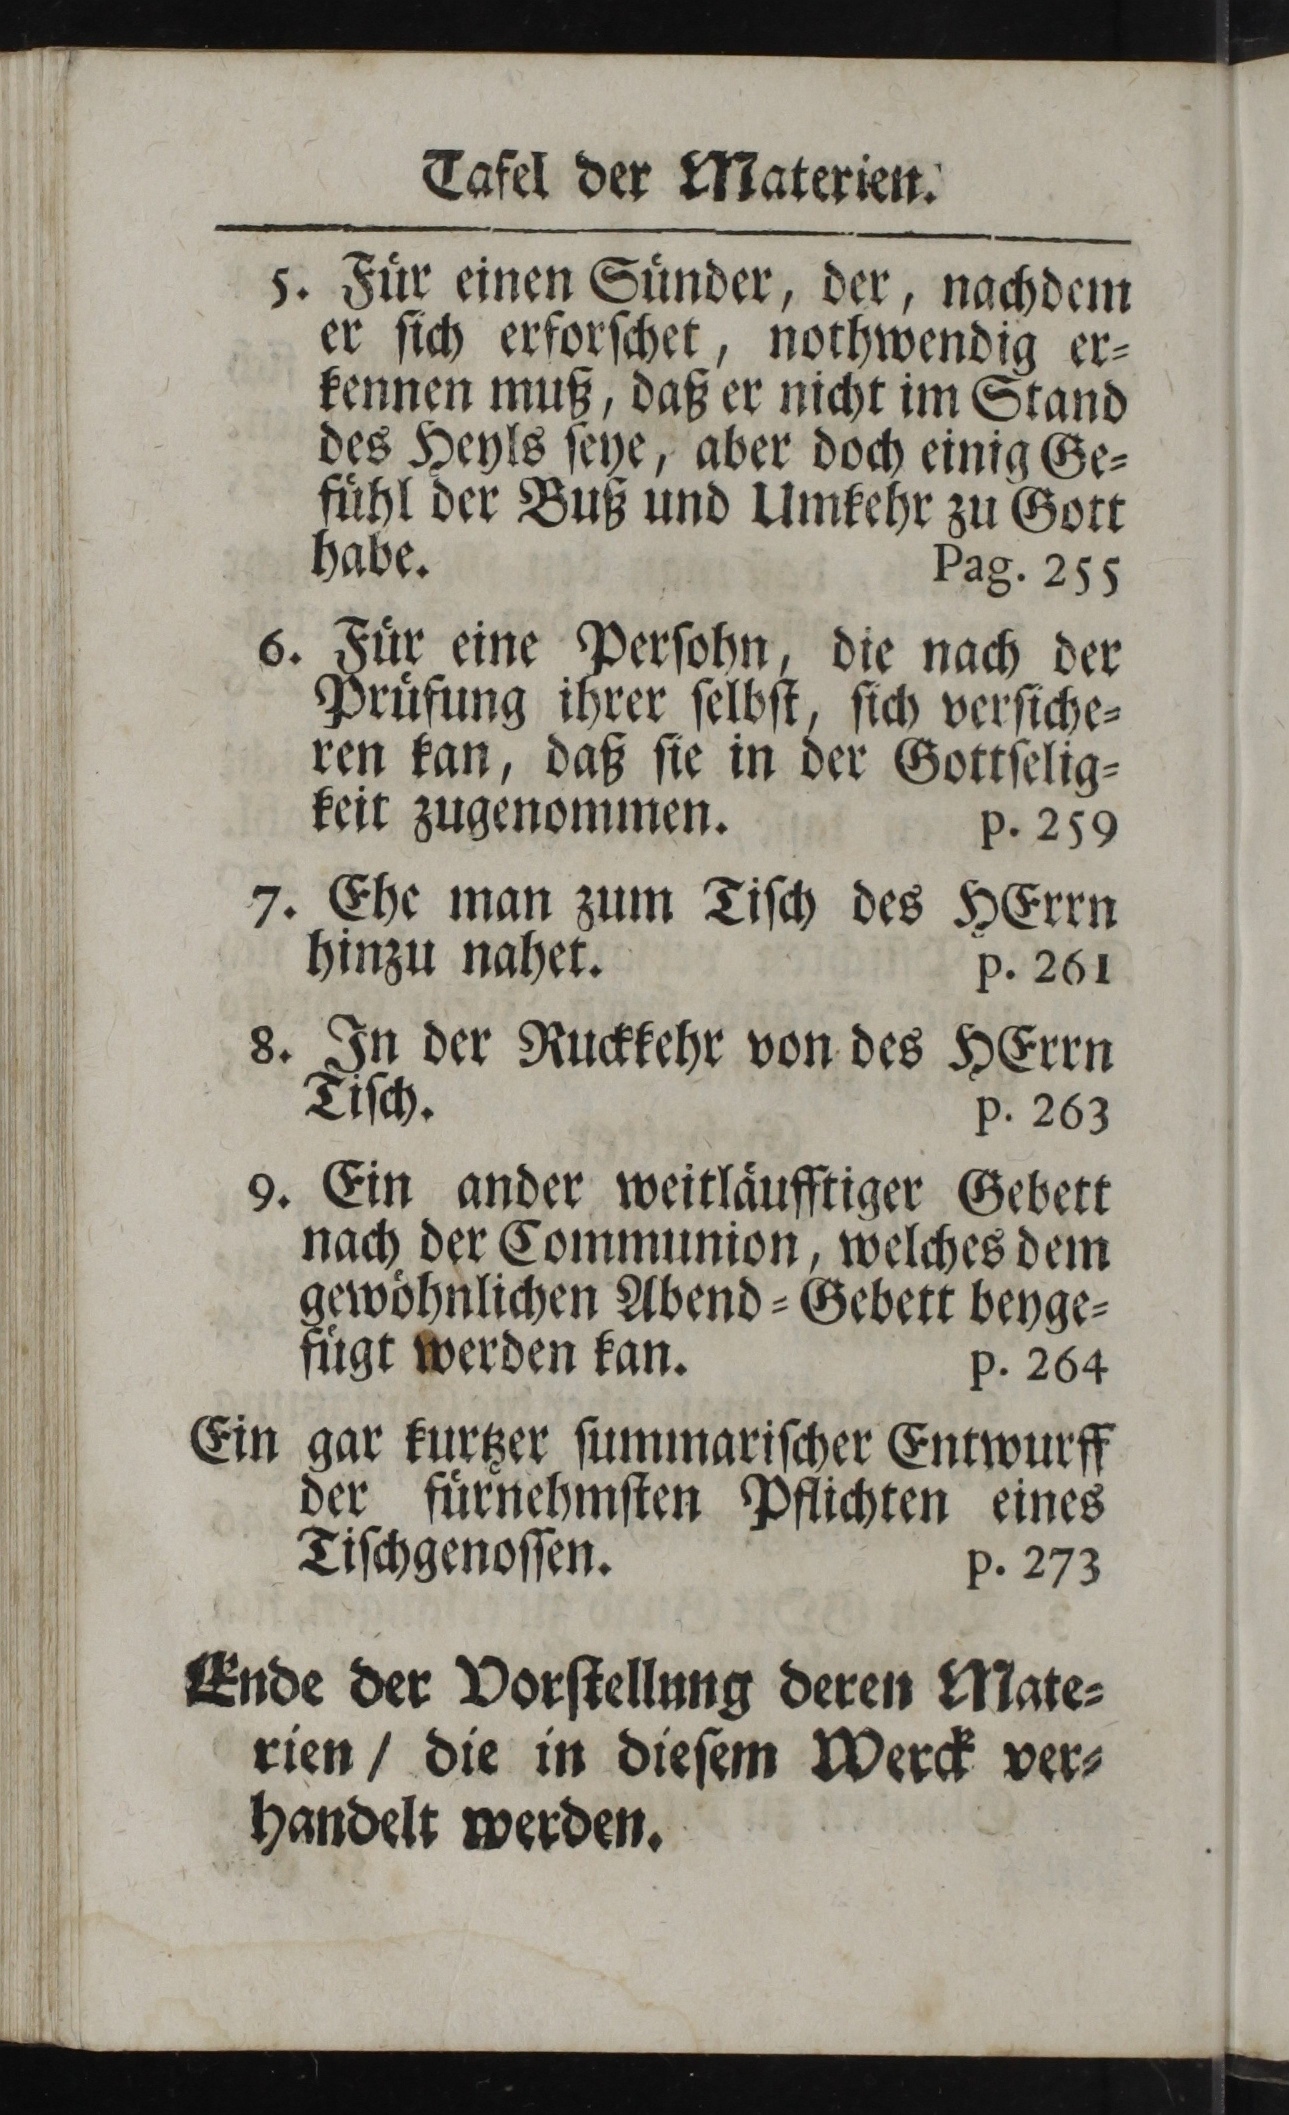 Tafel der Materien.
5. Für einen Sünder, der, nachdem
er ſich erforſchet, nothwendig er⸗
kennen muß, daß er nicht im Stand
des Heyls ſeye, aber doch einig Ge⸗
fühl der Buß und Umkehr zu Gott
habe. Pag. 255
6. Für eine Perſohn, die nach der
Prüfung ihrer ſelbſt, ſich verſiche⸗
ren kan, daß ſie in der Gottſelig⸗
keit zugenommen. p. 259
7. Ehe man zum Tiſch des HErrn
hinzu nahet. p. 261
8. In der Ruckkehr von des HErrn
Tiſch. p. 263
9. Ein ander weitläufftiger Gebett
nach der Communion, welches dem
gewöhnlichen Abend⸗Gebett beyge⸗
fügt werden kan. p. 264
Ein gar kurtzer ſummariſcher Entwurff
der fürnehmſten Pflichten eines
Tiſchgenoſſen. p. 273
Ende der Vorſtellung deren Mate⸗
rien / die in dieſem Werck ver⸗
handelt werden.